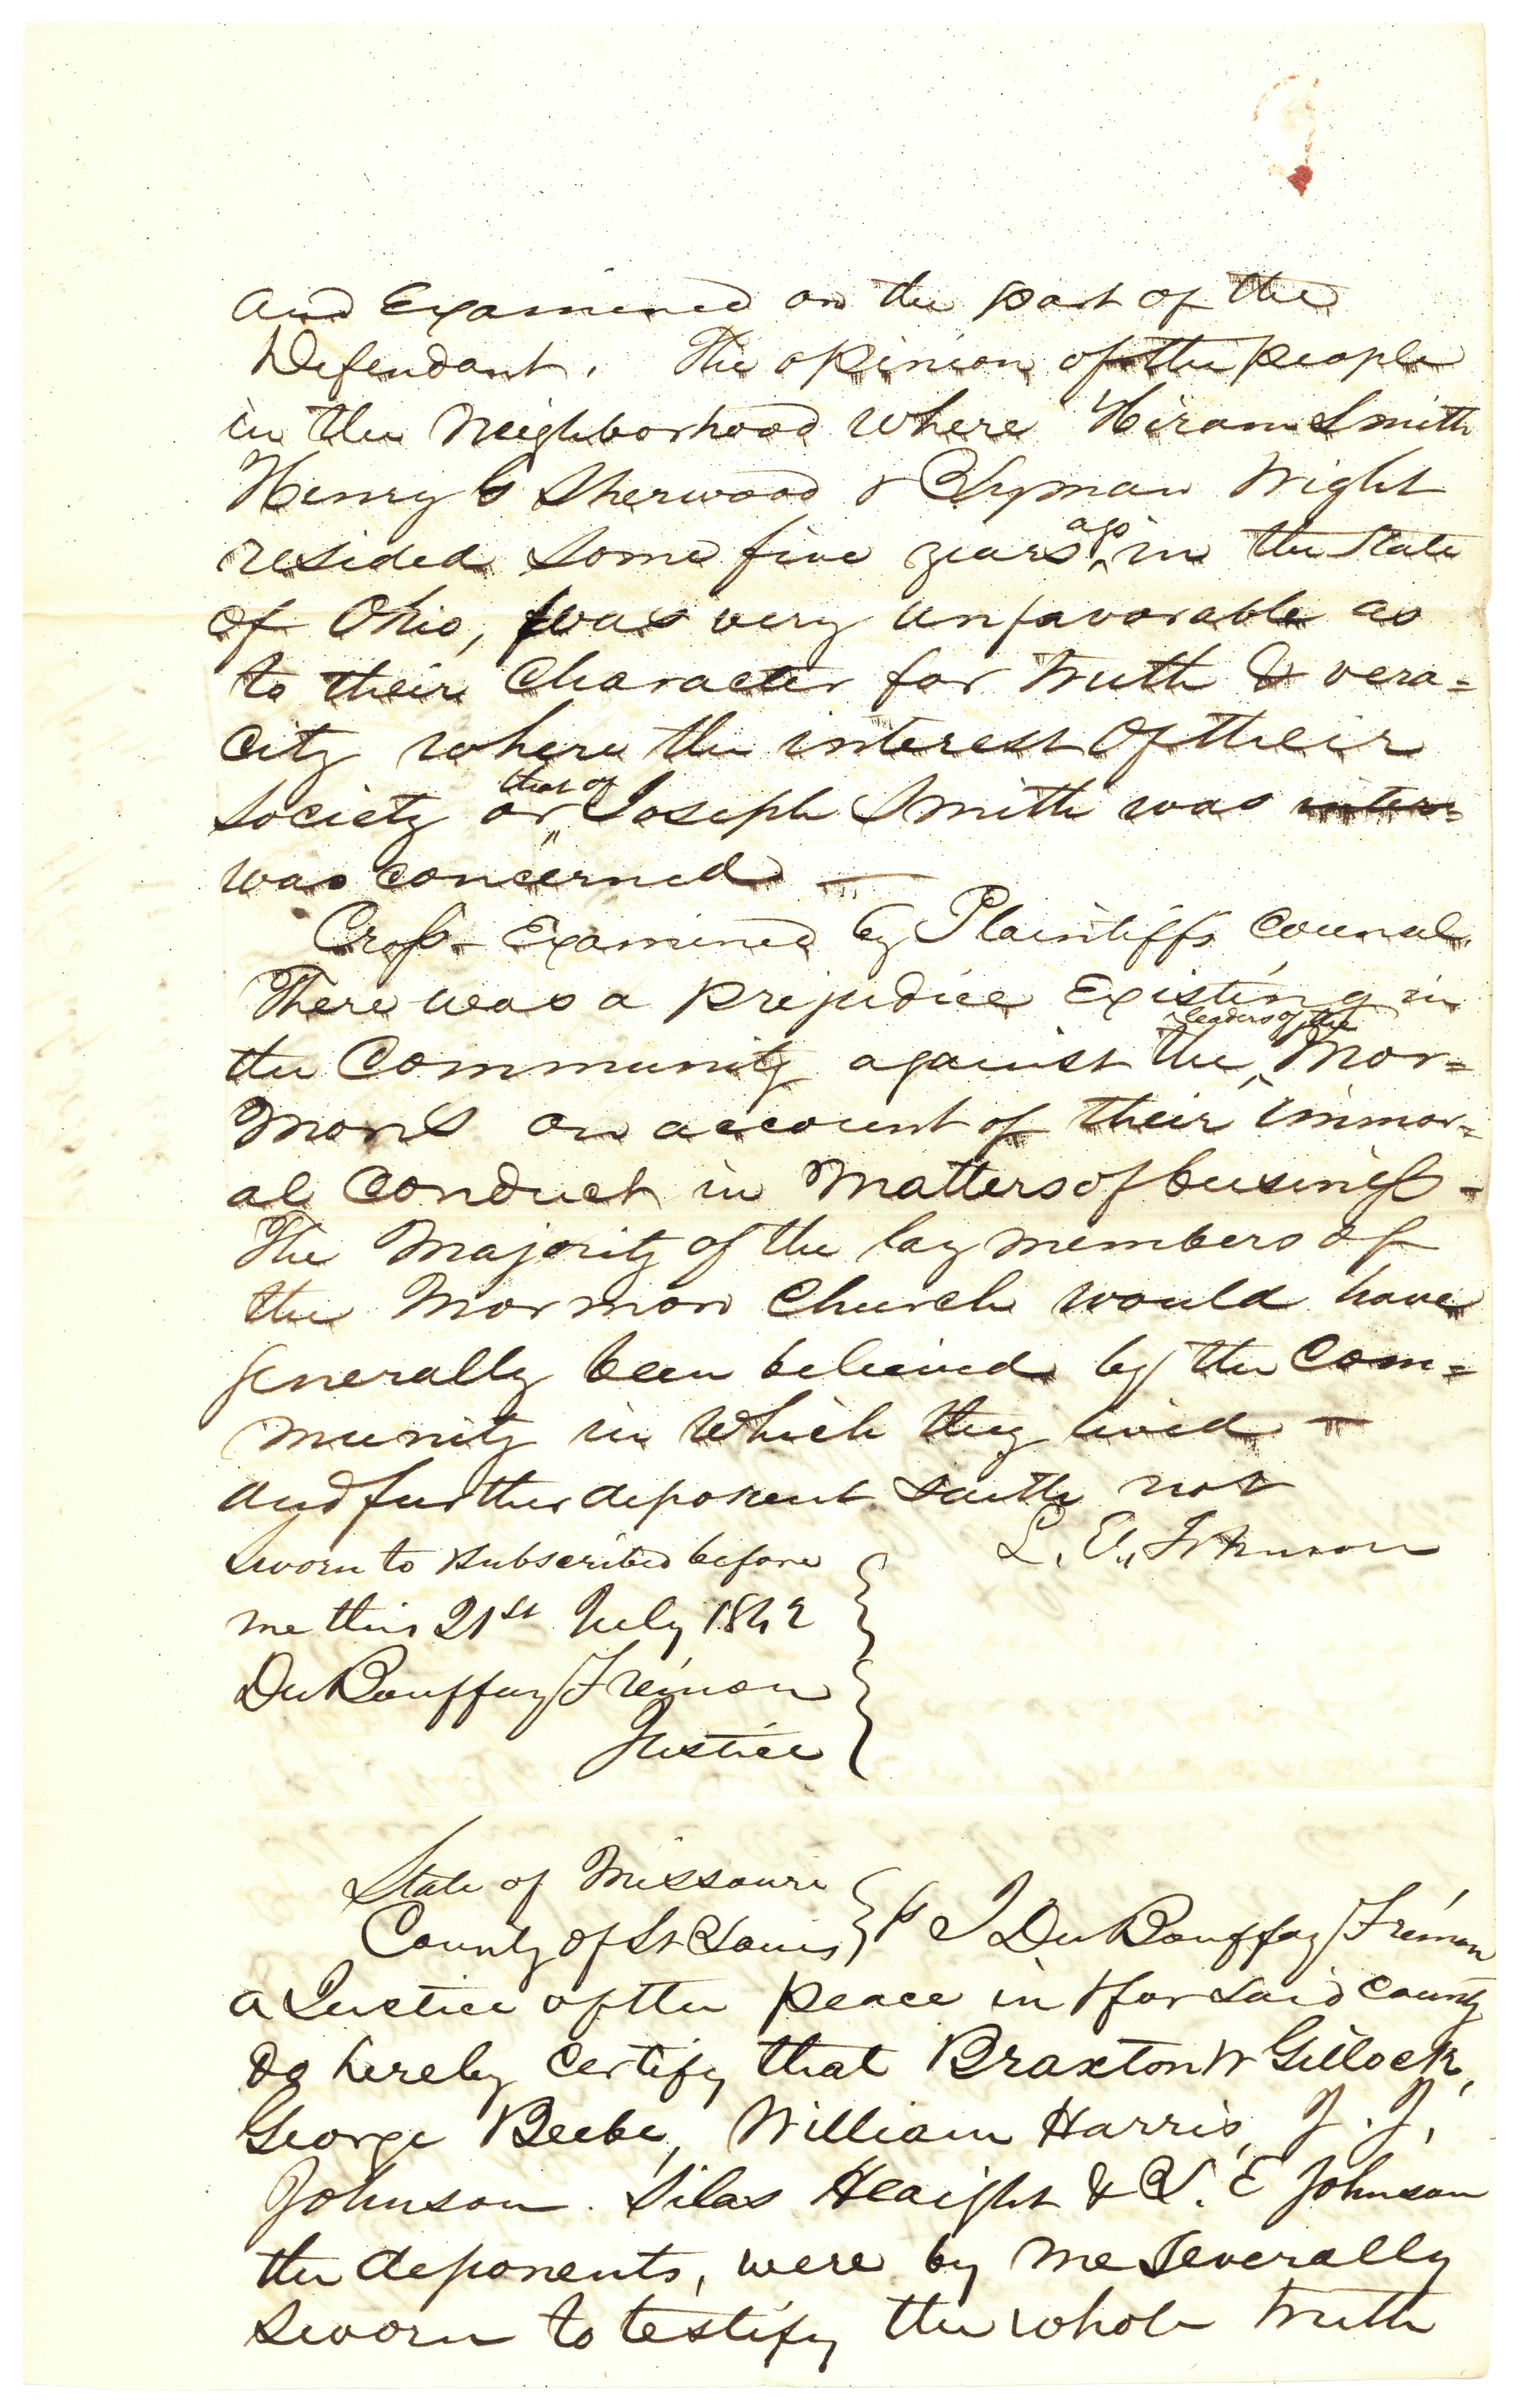 and Examined on the part of the
Defendant. The opinion of the people
in the Neighborhood where Hiram Smith
Henry G Sherwood & Lyman Wight
resided some five years ago in the State
of Ohio, was very unfavorable as
to their Character for truth & vera=
city where the interest of their
Society or that of Joseph Smith was inter=
was concerned —
Cross-Examined by Plaintiffs Counsel.
There was a prejudice Existing in
the Community against the leaders of the Mor=
mons on account of their immor=
al Conduct in Matters of business -
The Majority of the lay members of
the Mormon Church would have
generally been believed by the Com=
munity in which they lived —
and further deponent saith not
L. E. Johnson
Sworn to & subscribed before
me this 21st July 1842
DuBouffay Fremon
Justice
State of Missouri
County of St Louis ss I DuBouffay Fremon
a Justice of the peace in & for said County
do hereby certify that Braxton W Gillock,
George Beebe, William Harris, J. J.
Johnson. Silas Heaight & L. E Johnson
the deponents, were by me Severally
sworn to testify the whole truth